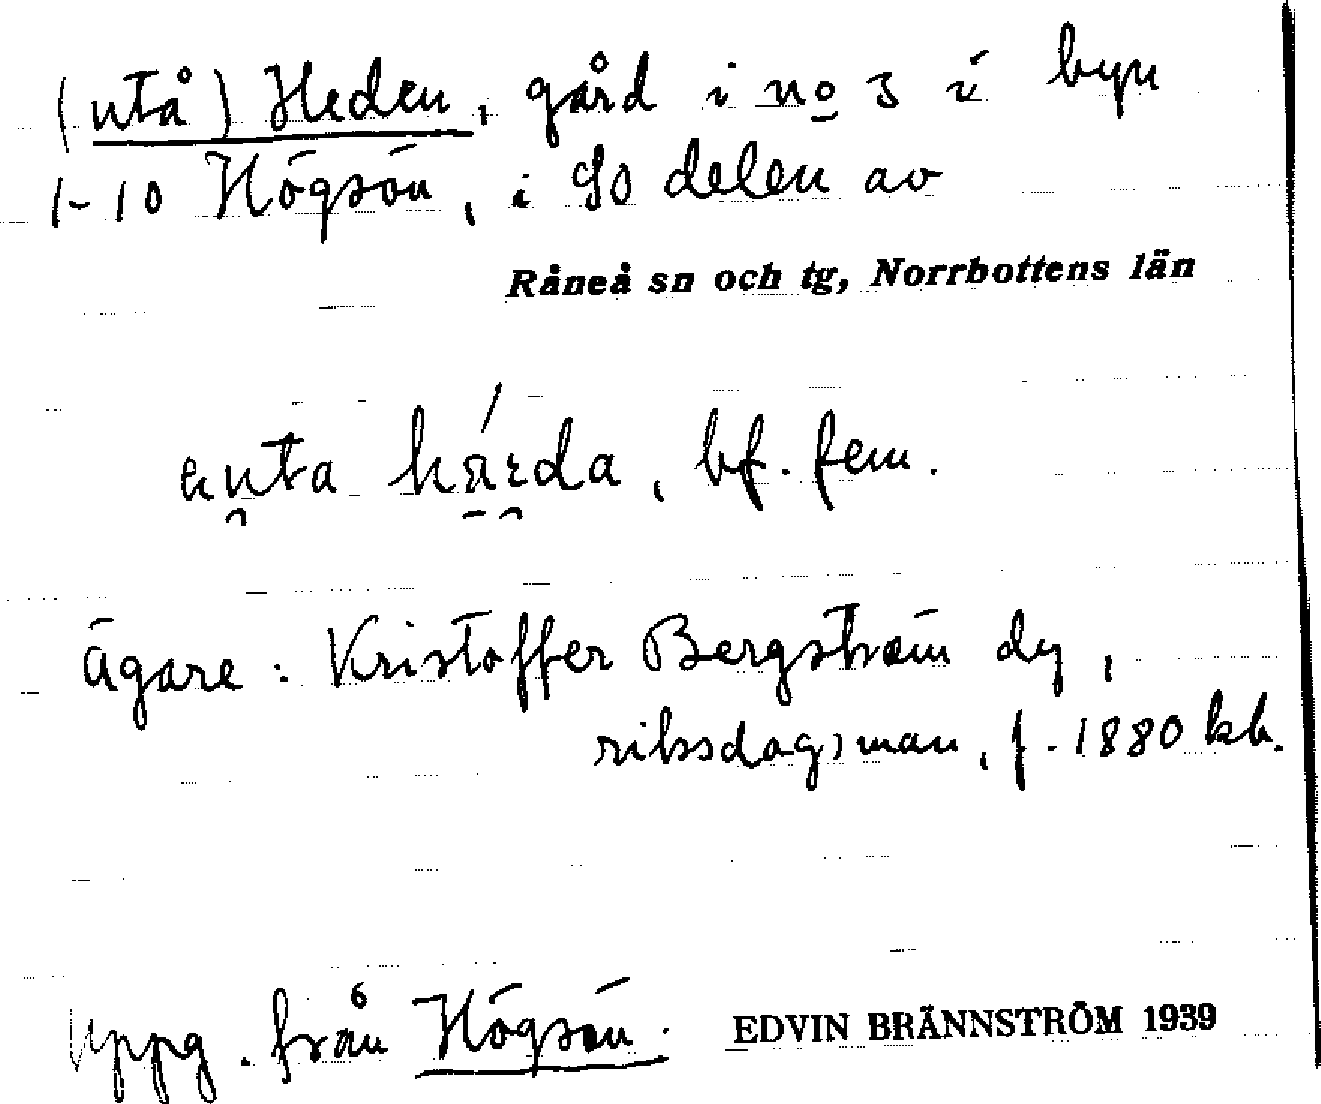 (utå) Heden, gård i no 3 i byn
1-10 Högsön, i SO delen av
Råneå sn och tg, Norrbottens län
hárda, bf. fem.
Ägare: Kristoffer Bergström dy,
riksdagsman, f. 1880 kb.
Uppg. från Högsön.
EDVIN BRÄNNSTRÖM 1939